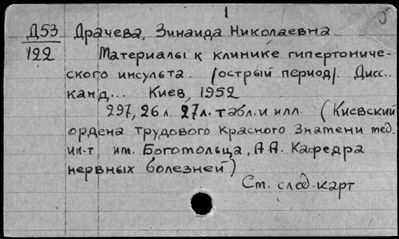 1
Д53 Драчева, Зинаида Николаевна
122 Материалы к клинике гипертониче-
ского инсульта. (острый период). Дисс..
канд... Киев, 1952
297, 26 л. 27л. табл. и илл. (Киевский
ордена Трудового Красного Знамени мед.
ин-т им. Богомольца, А А. Кафедра
нервных болезней)
См. след. карт